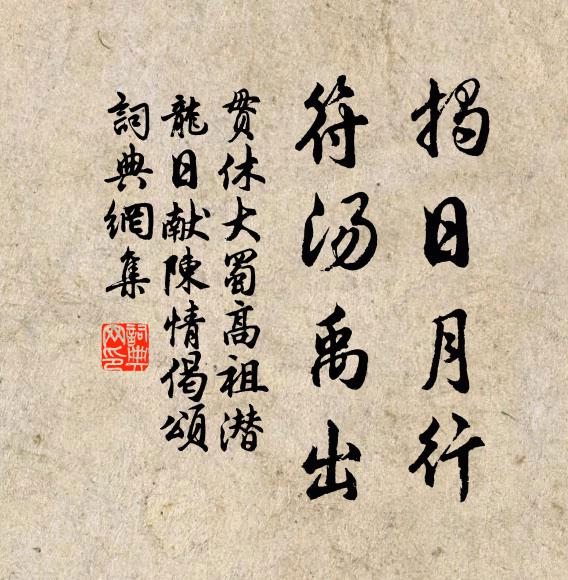 揭日月行
符汤禹出
贯休大蜀高祖潜
龍日献陳情偈頌
詞典網集
詞典网印